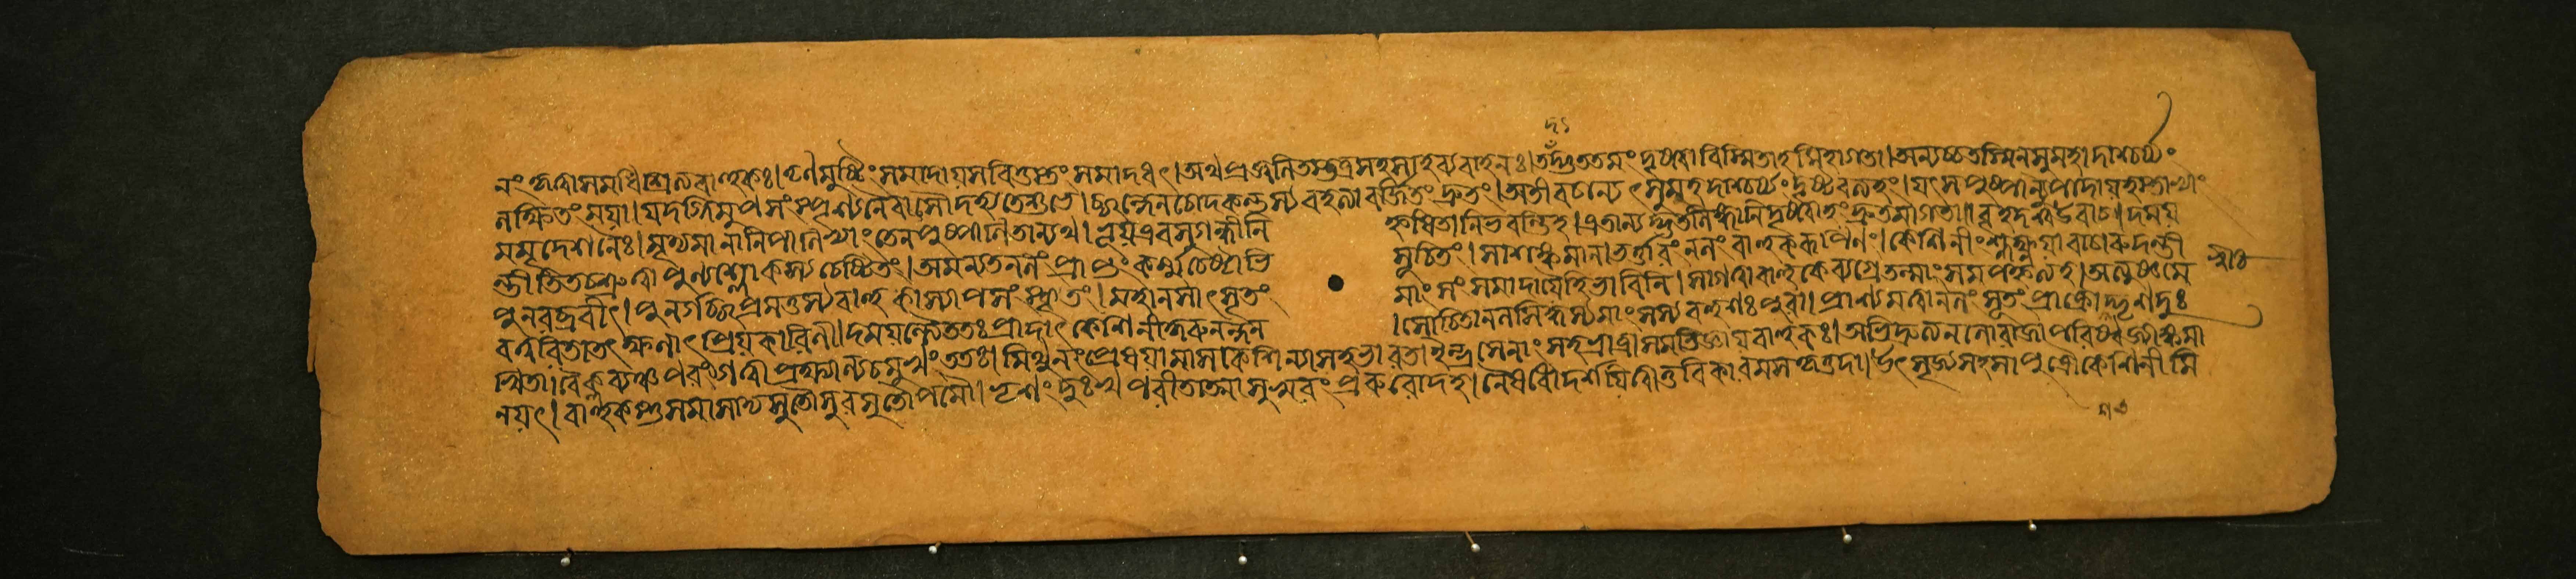 দ্য
নং প্রক্ষাল্য সমধিশ্রিত্যবাহুকঃ।তৃণমুষ্টিং সমাদায়সবিতুস্তং সমাদধৎ।অথপ্রজ্বলিতস্তত্রসহসাহব্যবাহনঃ।তদদ্ভুততমং দৃষ্ট্বা বিস্মিতাহমিহাগতা।অন্যচ্চতস্মিনসুমহাদাশ্চর্য্যং
লক্ষিতং ময়া।যদগ্নিমুপসংস্পৃশ্যনৈবাসৌদহ্যতেশুভে।চ্ছন্দেনচোদকন্তস্যবহত্যাবর্জিতং দ্রুতং।অতীবচান্যৎসুমহদাশ্চর্য্যং দৃষ্টবত্যহং।যৎসপুষ্পান্যুপাদায়হস্তাভ্যাং
মমৃদেশনৈঃ।মৃদ্যমানানিপাণিভ্যাং তেনপুষ্পাণিতান্যথ।ভূয়এবসুগন্ধীনি হৃষিতানিভবন্তিহ।এতান্যদ্ভুতলিঙ্গানিদৃষ্ট্বাহং দ্রুতমাগতা॥বৃহদশ্বউবাচ॥দময়
ন্তীতুতচ্ছ্রুত্বাপুণ্যশ্লোকস্যচেষ্টিতং।অমন্যতনলং প্রাপ্তং কর্ম্মচেষ্টাভি সূচিতং।সাশঙ্কমানাভর্ত্তারং নলং বাহুকরূপিণং।কেশিনীং শ্লক্ষ্ণয়াবাচারুদন্তী
পুনরব্রবীৎ।পুনর্গচ্ছপ্রমত্তস্যবাহুকস্যোপসংস্কৃতং।মহানসাৎসৃতং মাংসং সমাদায়ৈহিভাবিনি।সাগত্বাবাহুকেব্যগ্রেতন্মাংসমপকৃষ্যহ।অত্যুষ্ণমে
বত্বরিতাতৎক্ষণাৎপ্রিয়কারিণী।দময়ন্ত্যৈততঃপ্রাদাৎকেশিনীকুরুনন্দন ।সোচিতানলসিদ্ধস্যমাংসস্যবহুশঃপুরা।প্রাশ্যমত্বানলং সূতং প্রাক্রোশদ্ভৃশদুঃ
খিতা।বৈক্লব্যঞ্চপরংগত্বাপ্রক্ষাল্যচমুখং ততঃ।মিথুনং প্রেষয়ামাসকেশিন্যাসহভারত।ইন্দ্রসেনাং সহভ্রাত্রাসমভিজ্ঞায়বাহুকঃ।অভিদ্রুত্যততোরাজাপরিষ্বজ্যাঙ্কমা
নয়ৎ।বাহুকস্তুসমাসাদ্যসুতৌসুরসুতোপমৌ।ভৃশং দুঃখপরীতাত্মাসুস্বরং প্ররুরোদহ।নৈষধোদর্শয়িত্বাতুবিকারমসকৃত্তদা।উৎসৃজ্যসহসাপুত্রৌকেশিনীমি